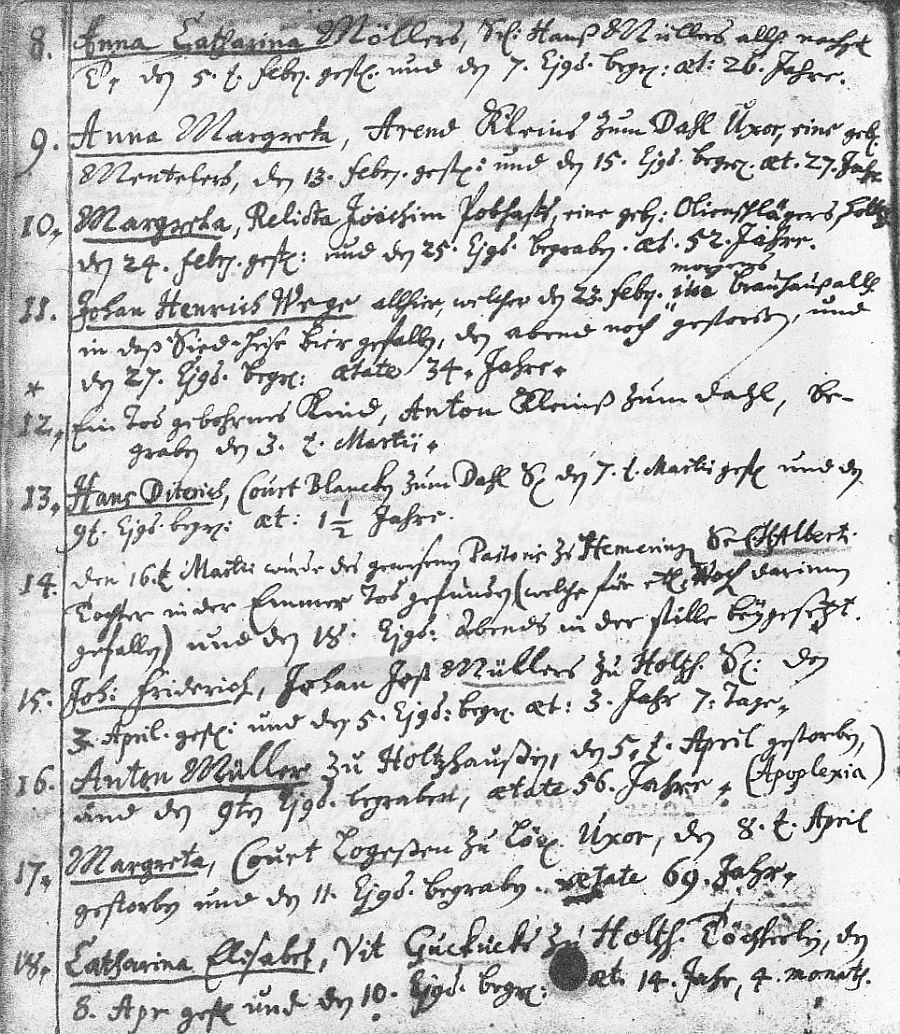 8. Anna Catharina Möllers, Sel: Hanß Müllers allh. nachgel.
T. den 5. t. febr. gest. und den 7. Ejusd. begr: æt: 26. Jahre.
9. Anna Margreta, Arend Kleins zum Dahl Uxor, eine geb.
Mentelers, den 13. febr. gest: und den 15. Ejusd. begr. æt. 27. Jahr
10. Margreta, Relicta Joachim Pobhasts, eine geb: Olienschlägers,
den 24. febr. gest: und den 25. Ejusd. begraben. æt. 52. Jahre.
morgens
11. Johan Henrich Wege allhier, welcher den 23. febr. im brauhauß allh.
in daß Sied-heise bier gefallen, den abend noch gestorben, und
den 27. Ejusd. begr: ætate 34. Jahre.
*
12. Ein Tod gebohrnes Kind, Anton Kleinß zum dahl, be-
graben den 3. t. Martii.
13. Hans Diterich, Court Blancken zum Dahl S. den 7. t. Martii gest. und den
9t. Ejusd. begr: æt: 1 1/2 Jahre.
14. den 16. t. Martii wurde des gewesenen Pastoris zu Hemering Se: H Albert.
Tochter in der Emmer Tod gefunden (welche für etl. Woch darinnen
gefallen) und den 18. Ejusd: Abends in der stille beÿgesetzt.
15. Joh: friderich, Johan Jost Müllers zu Holtzh. S: den
3. April. gest: und den 5. Ejusd: begr. æt: 3. Jahr 7: Tage.
16. Anton Müller zu Holtzhaußen, den 5. t. April gestorben,
und den 9ten Ejusd. begraben, ætate 56. Jahre. (Apoplexia)
17. Margreta, Court Logesten zu Uxor, den 8. t. April
gestorben und den 11. Ejusd. begraben. ætate 69. Jahr.
18. Catharina Elisabet, Vit Guckucks zu Holtzh. Töchterlein, den
8. Apr gest und den 10. Ejusd. begr: æt. 14. Jahr, 4. monath.